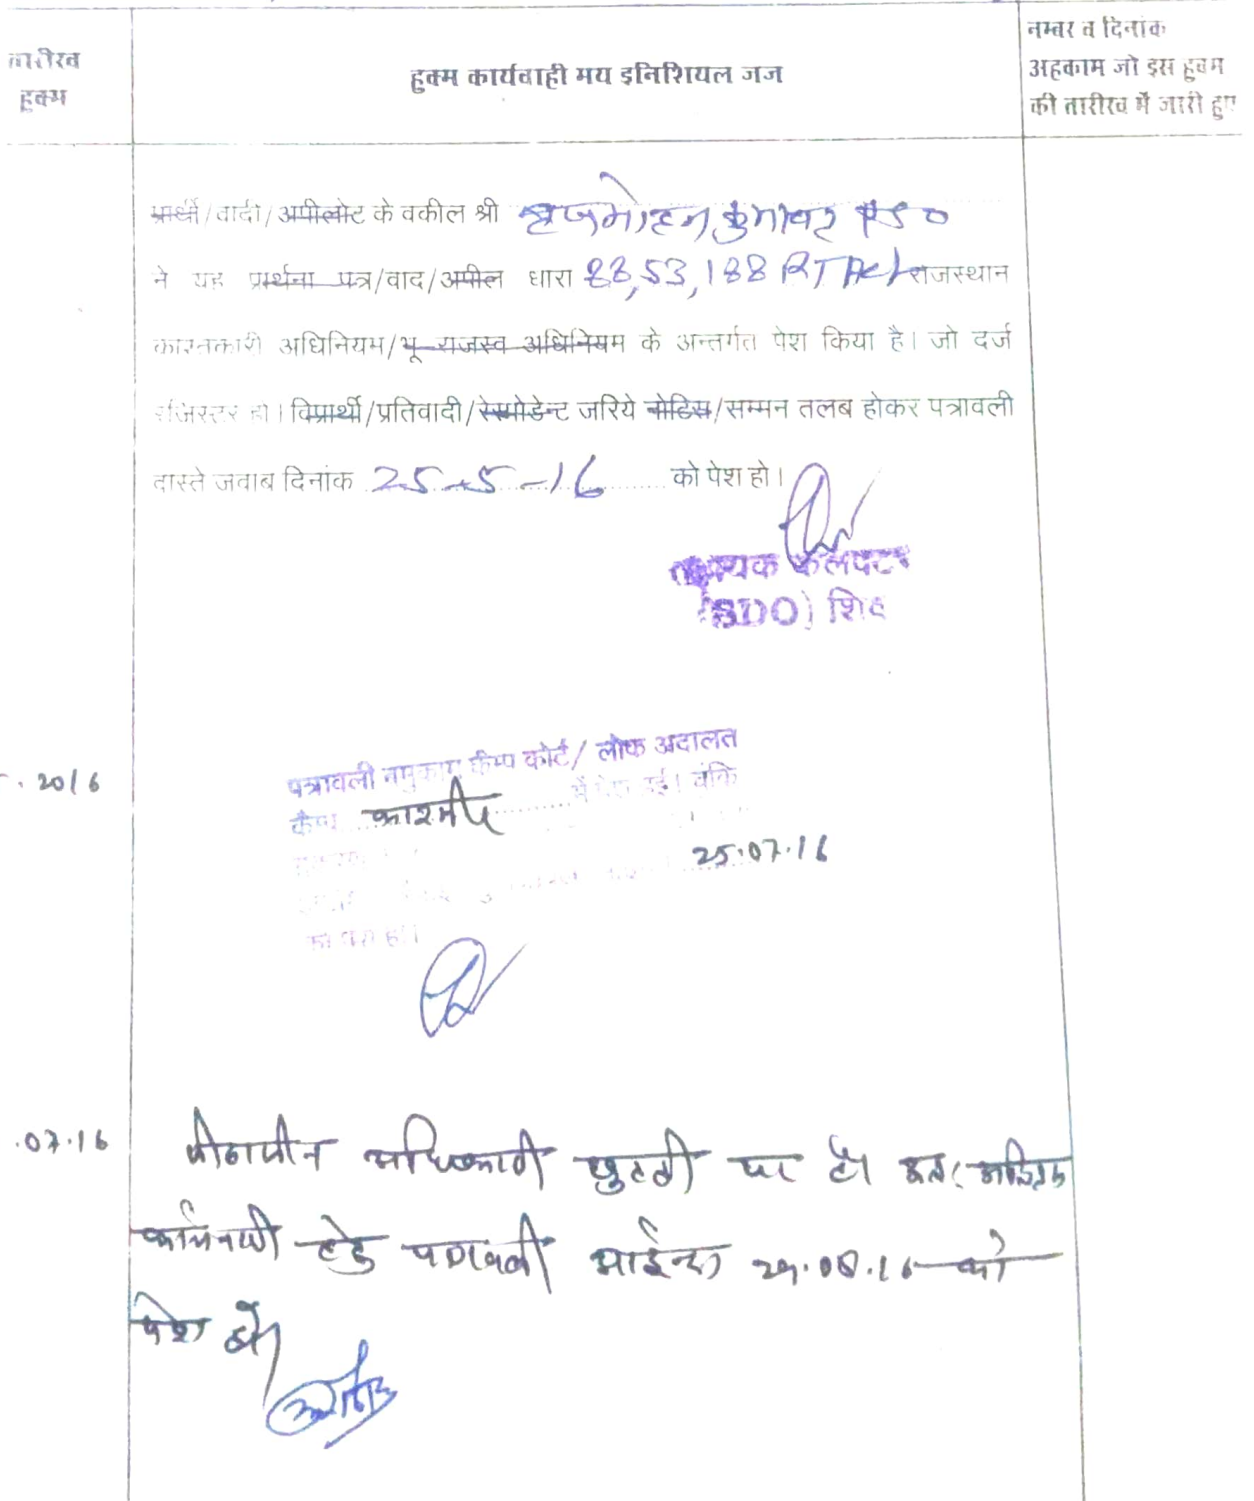 तारीख
हुक्म
हुक्म कार्यवाही मय इनिशियल जज
नम्बर व दिनांक
अहकाम जो इस हुक्म
की तारीख में जारी हुए
प्रार्थी/वादी/अपीलोट के वकील श्री बृजमोहन कुमावत
ने यह प्रार्थना पत्र/वाद/अपील धारा 88,53,188 RT Act राजस्थान
काश्तकारी अधिनियम/भू-राजस्व अधिनियम के अन्तर्गत पेश किया है। जो दर्ज
रजिस्टर हो। विप्रार्थी/प्रतिवादी/रेस्पोडेन्ट जरिये नोटिस/सम्मन तलब होकर पत्रावली
वास्ते जवाब दिनांक 25-5-16 को पेश हो।
सहायक कलक्टर
(SDO) शिव
. 2016
पत्रावली बमुकाम कैम्प कोर्ट/ लोक अदालत
कैम्प काश्मीर में पेश हुई। चूंकि
25.07.16
को पेश हो।
.07.16
पीठासीन अधिकारी छुट्टी पर है। अतः
कार्यवाही हेतु पत्रावली आईन्दा 29.08.16 को
पेश हो।